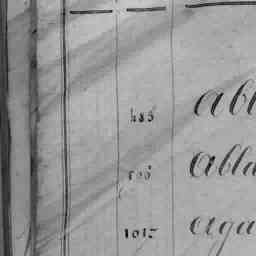 485 Abl
Abla
1017 Aga